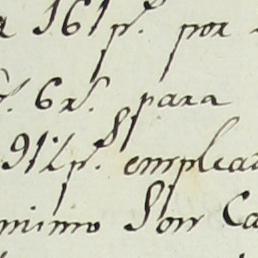 161 p.s por
6 r.s para
91 1/2 p.s emplea
mimo Son Ca